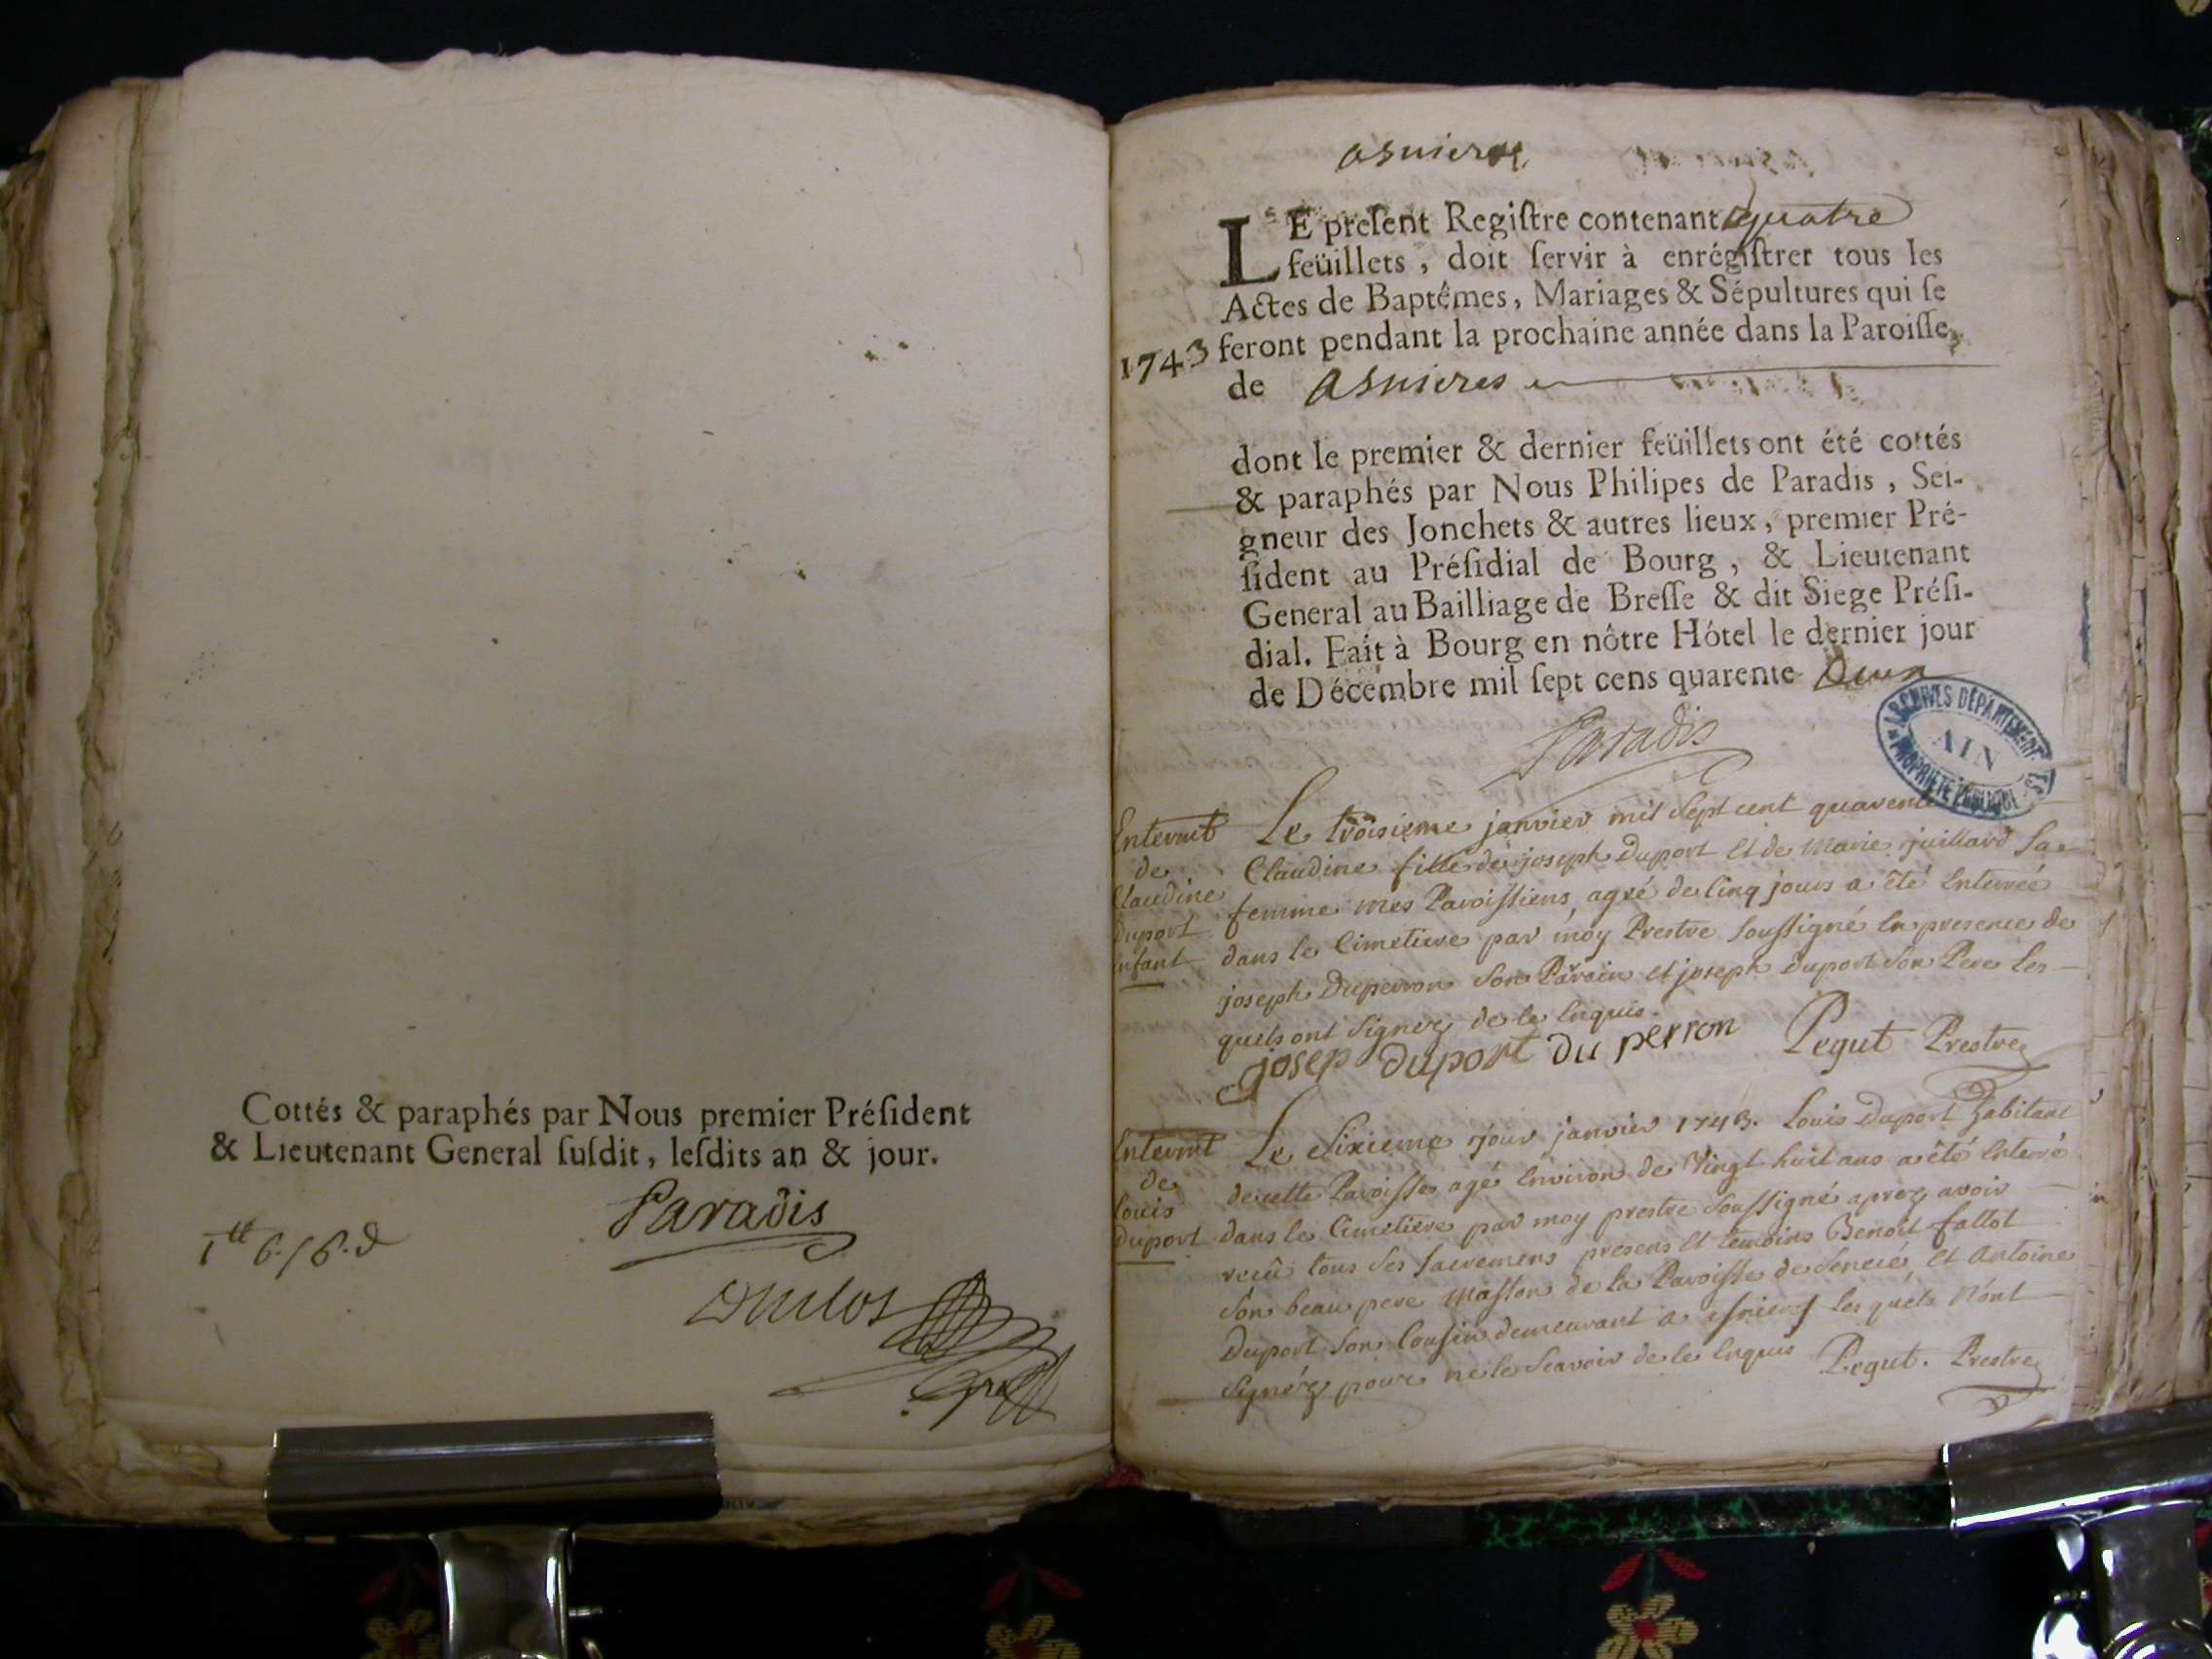 Cottés & paraphés par Nous premier Préſident
& Lieutenant General ſuſdit, leſdits an & jour.
Paradis
asnieres
LE preſent Regiſtre contenant quatre
feüillets, doit ſervir à enrégiſtrer tous les
Actes de Baptêmes, Mariages & Sépultures qui ſe
1743 feront pendant la prochaine année dans la Paroiſſe
de asnieres
dont le premier & dernier feüillets ont été cottés
& paraphés par Nous Philipes de Paradis, Sei-
gneur des Jonchets & autres lieux, premier Pré-
ſident au Préſidial de Bourg, & Lieutenant
General au Bailliage de Breſſe & dit Siege Préſi-
dial. Fait à Bourg en nôtre Hótel le dernier jour
de Décembre mil ſept cens quarente Deux
Paradis
ARCHIVES DÉPARTEMENTALES
AIN
PROPRIÉTÉ PUBLIQUE
Entermt
de
Claudine
Duport
enfant
Le troisieme janvier mil sept cent quarente
Claudine fille de joseph Duport et de Marie juillard Sa
femme mes Paroissiens, ageé de Cinq jours a été Enterreé
dans le Cimetiere par moy Prestre soussigné En presence de
joseph Duperron Son Parain et joseph Duport son Pere les
quels ont Signez de le Enquis.
josep duport du perron Pegut Prestre
Entermt
de
Louis
Duport
Le Sixieme jour janvier 1743. Louis Duport habitant
de cette Paroisse agé Environ de Vingt huit ans a été Enterré
dans le Cimetiere par moy prestre soussigné aprez avoir
recû tous ses sacremens presens et temoins Benoit fattot
son beau pere Masson de la Paroisse de Senecé, et Antoine
Duport son Cousin demeurant a asnieres les quels N'ont
signéz pour ne le Scavoir de le Enquis Pegut. Prestre